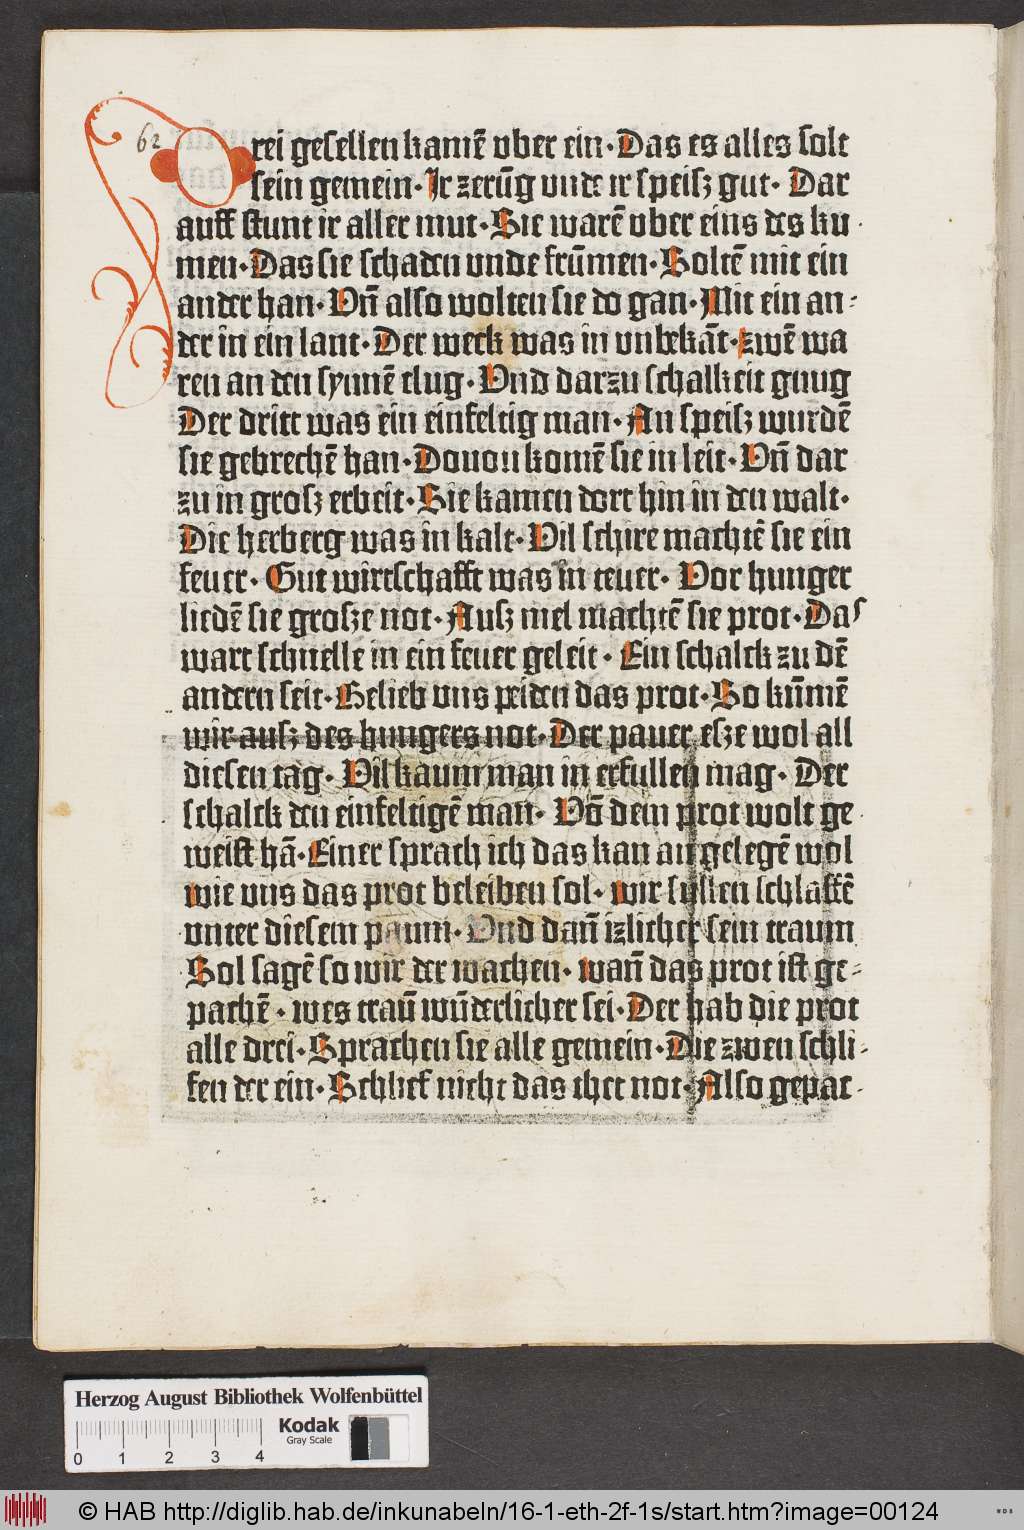 62
Drei gesellen kamē vber ein·Das es alles solt
sein gemein·Ir zerūg vnde ir speisz gut· Dar
auff stunt ir aller mut·Sie warē vber eins des ku·
men·Das sie schaden vnde frūmen·Soltē mit ein
ander han· Vn̄ also wolten sie do gan·Mit ein an⸗
der in ein lant·Der weck was in vnbekāt·zwē wa
ren an den synnē clug·Vnd darzu schalkeit gnug
Der dritt was ein einfeltig man·An speisz wurdē
sie gebrechē han·Dovon komē sie in leit·Vn̄ dar
zu in grosz erbeit·Sie kamen dort hin in den walt·
Die herberg was in kalt·Vil schire machtē sie ein
feuer· Gut wirtschafft was in teuer· Vor hunger
lidē sie grosze not·Ausz mel machtē sie prot·Das
wart schnelle in ein feuer geleit· Ein schalck zu dē
andern seit·Belieb vns peiden das prot·So kūmē
wir ausz des hungers not·Der pauer esze wol all
diesen tag· Vil kaum man in erfullen mag· Der
schalck den einfeltigē man· Vō dem prot wolt ge
weist hā·Einer sprach ich das kan an gelegē wol
wie vns das prot beleiben sol· wir sullen schlaffē
vnter diesem paum·Vnd dan̄ izlicher sein traum
Sol sagē so wir der wachen· wan̄ das prot ist ge⸗
pachē · wes traū wūderlicher sei·Der hab die prot
alle drei·Sprachen sie alle gemein·Die zwen schli⸗
fen der ein·Schlief nicht das thet not·Also gepac⸗
Herzog August Bibliothek Wolfenbüttel
Kodak
Gray Scale
0 1 2 3 4
© HAB http://diglib.hab.de/inkunabeln/16-1-eth-2f-1s/start.htm?image=00124